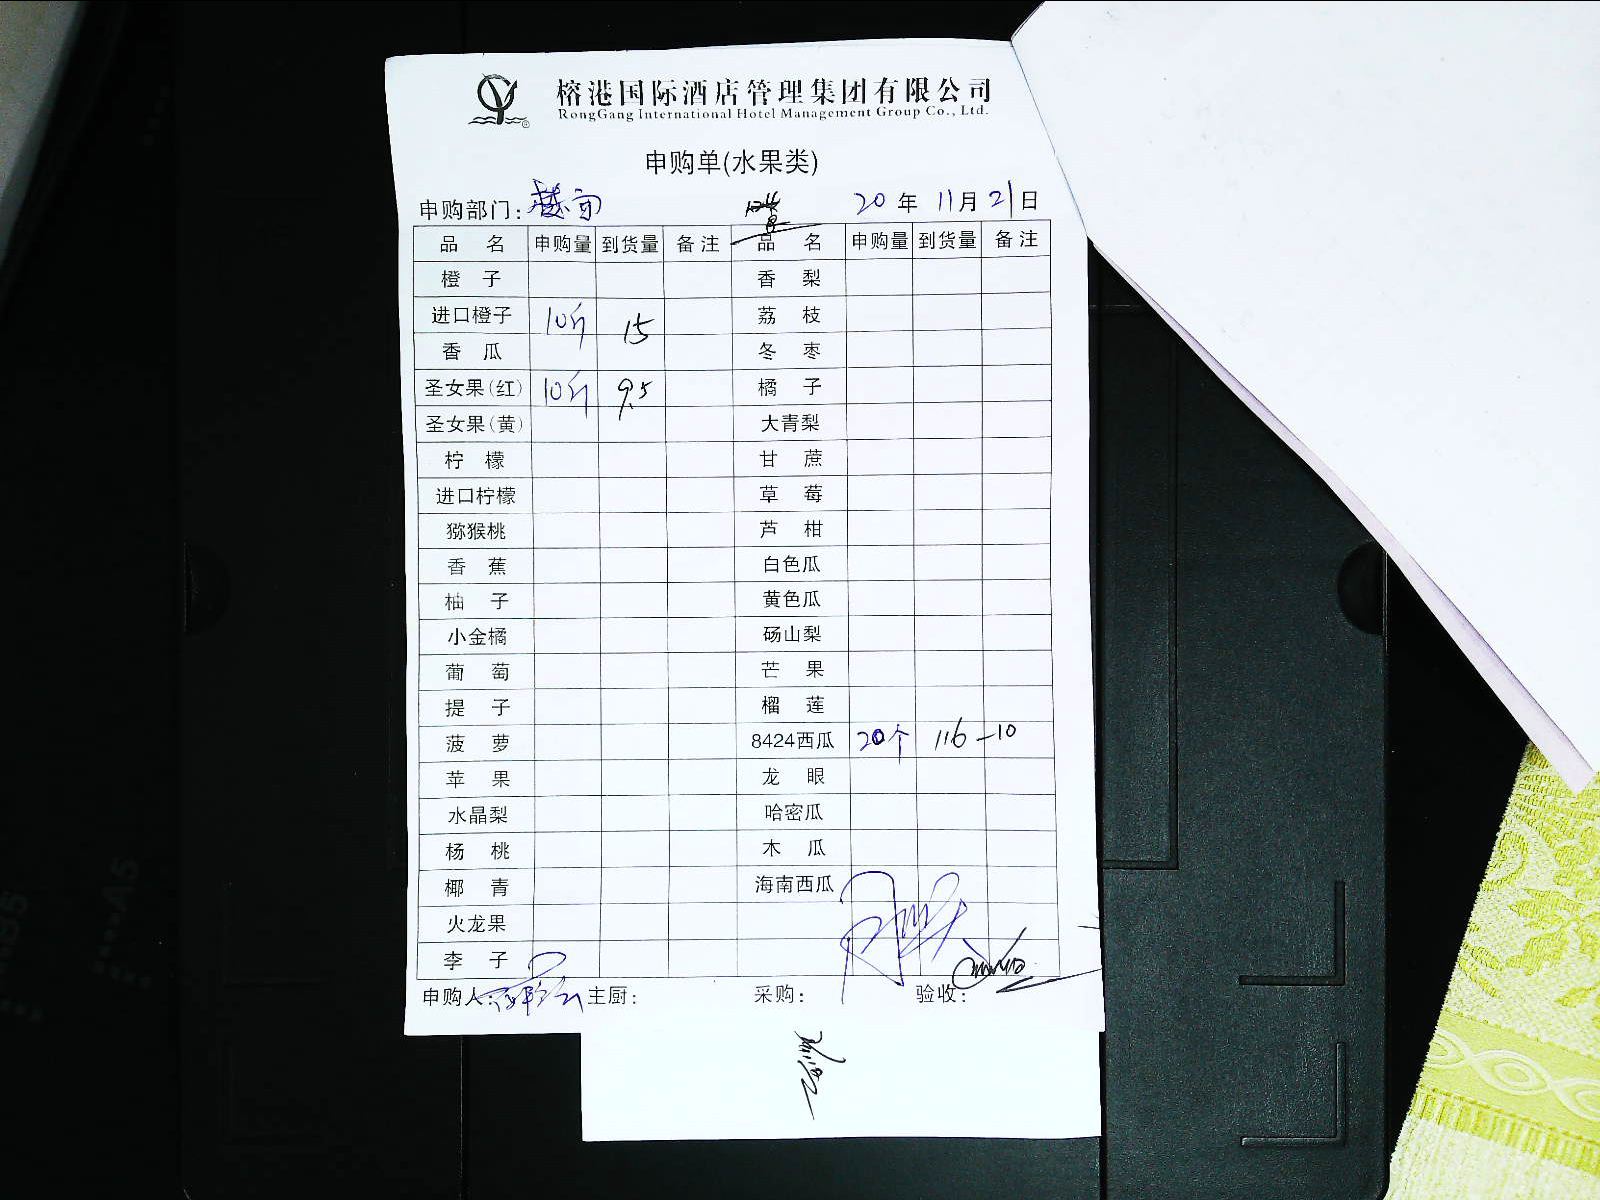 榕港国际酒店管理集团有限公司
RongGang International Hotel Management Group Co., Ltd.
申购单(水果类)
申购部门: 20 年 11 月 21 日
品 名 申购量 到货量 备注 品 名 申购量 到货量 备注
橙 子 香 梨
进口橙子 10斤 15 荔 枝
香 瓜 冬 枣
圣女果(红) 10斤 9.5 橘 子
圣女果(黄) 大青梨
柠 檬 甘 蔗
进口柠檬 草 莓
猕猴桃 芦 柑
香 蕉 白色瓜
柚 子 黄色瓜
小金橘 砀山梨
葡 萄 芒 果
提 子 榴 莲
菠 萝 8424西瓜 20个 116-10
苹 果 龙 眼
水晶梨 哈密瓜
杨 桃 木 瓜
椰 青 海南西瓜
火龙果
李 子
申购人: 主厨: 采购: 验收:
A5
B5